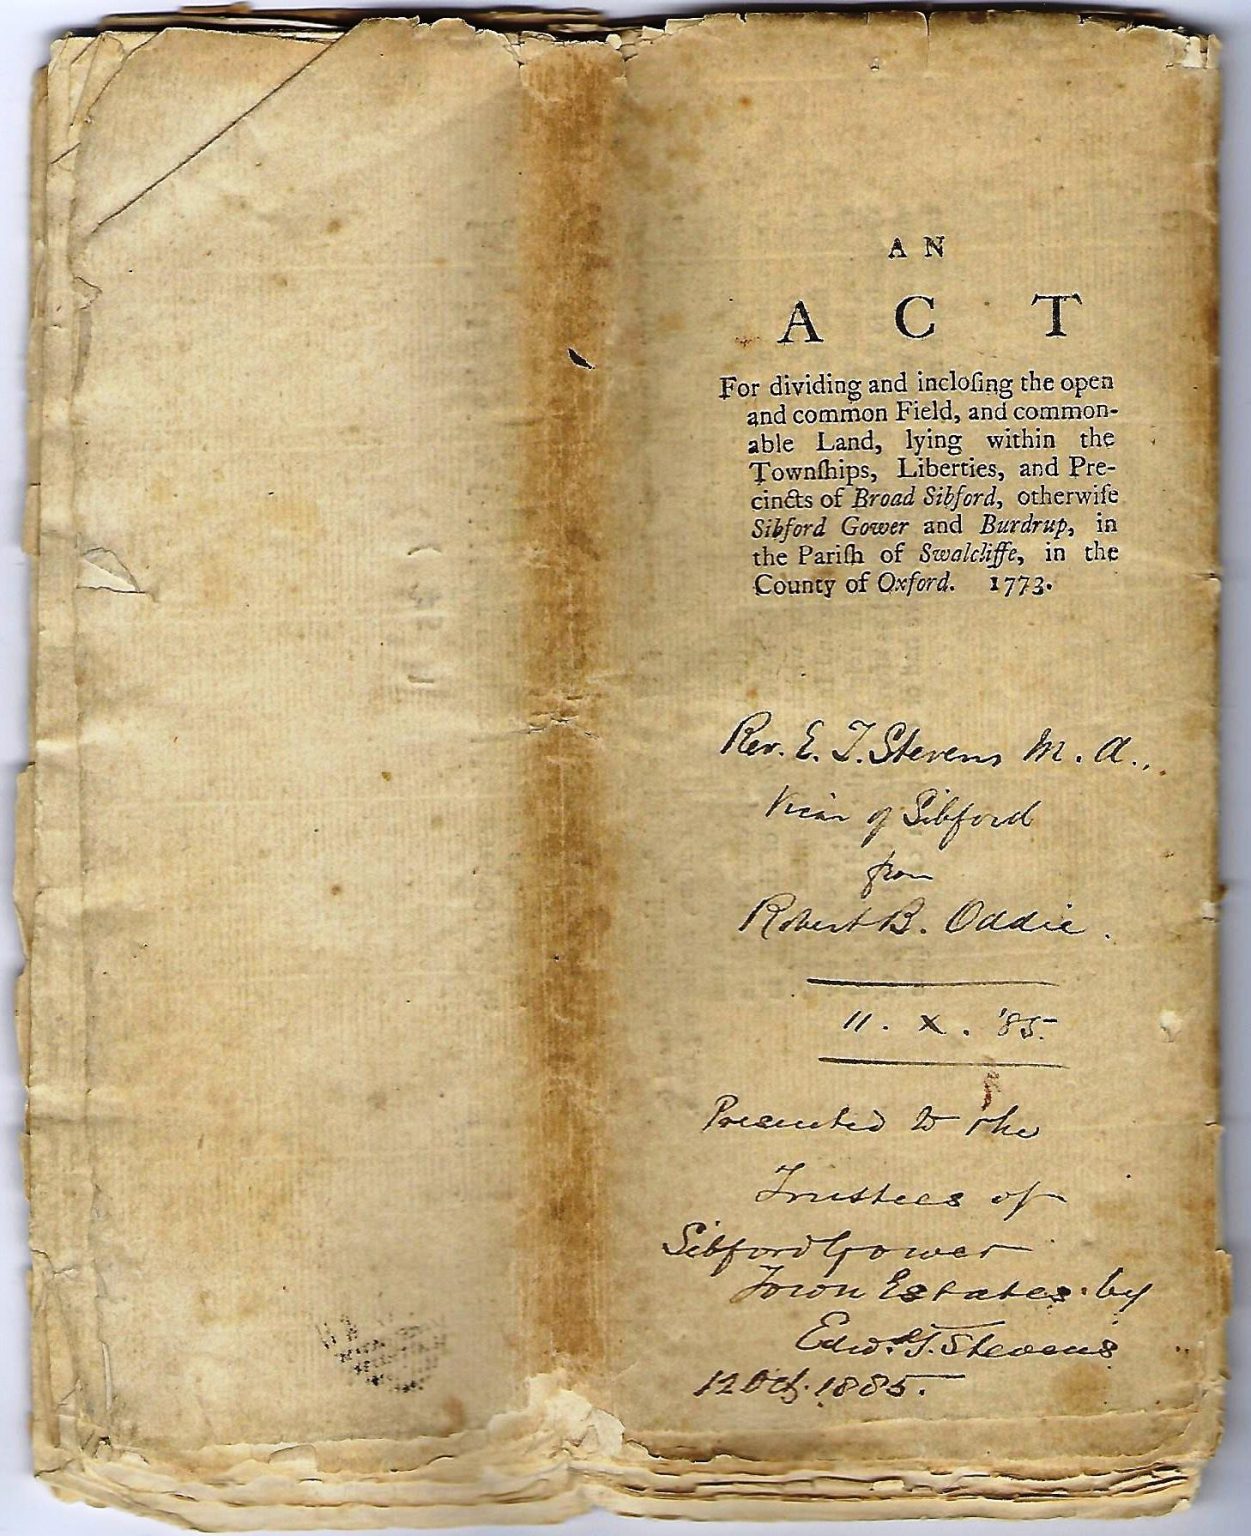 AN
ACT
For dividing and incloſing the open
and common Field, and common-
able Land, lying within the
Townſhips, Liberties, and Pre-
cincts of Broad Sibford, otherwiſe
Sibford Gower and Burdrup, in
the Pariſh of Swalcliffe, in the
County of Oxford. 1773.
Rev. E. T. Stevens M. A.,
Vicar of Sibford
from
Robert B. Oddie.
11. X. '85.
Presented to the
Trustees of
Sibford Gower
Town Estates by
Edwd. T. Stevens
12 Oct. 1885.